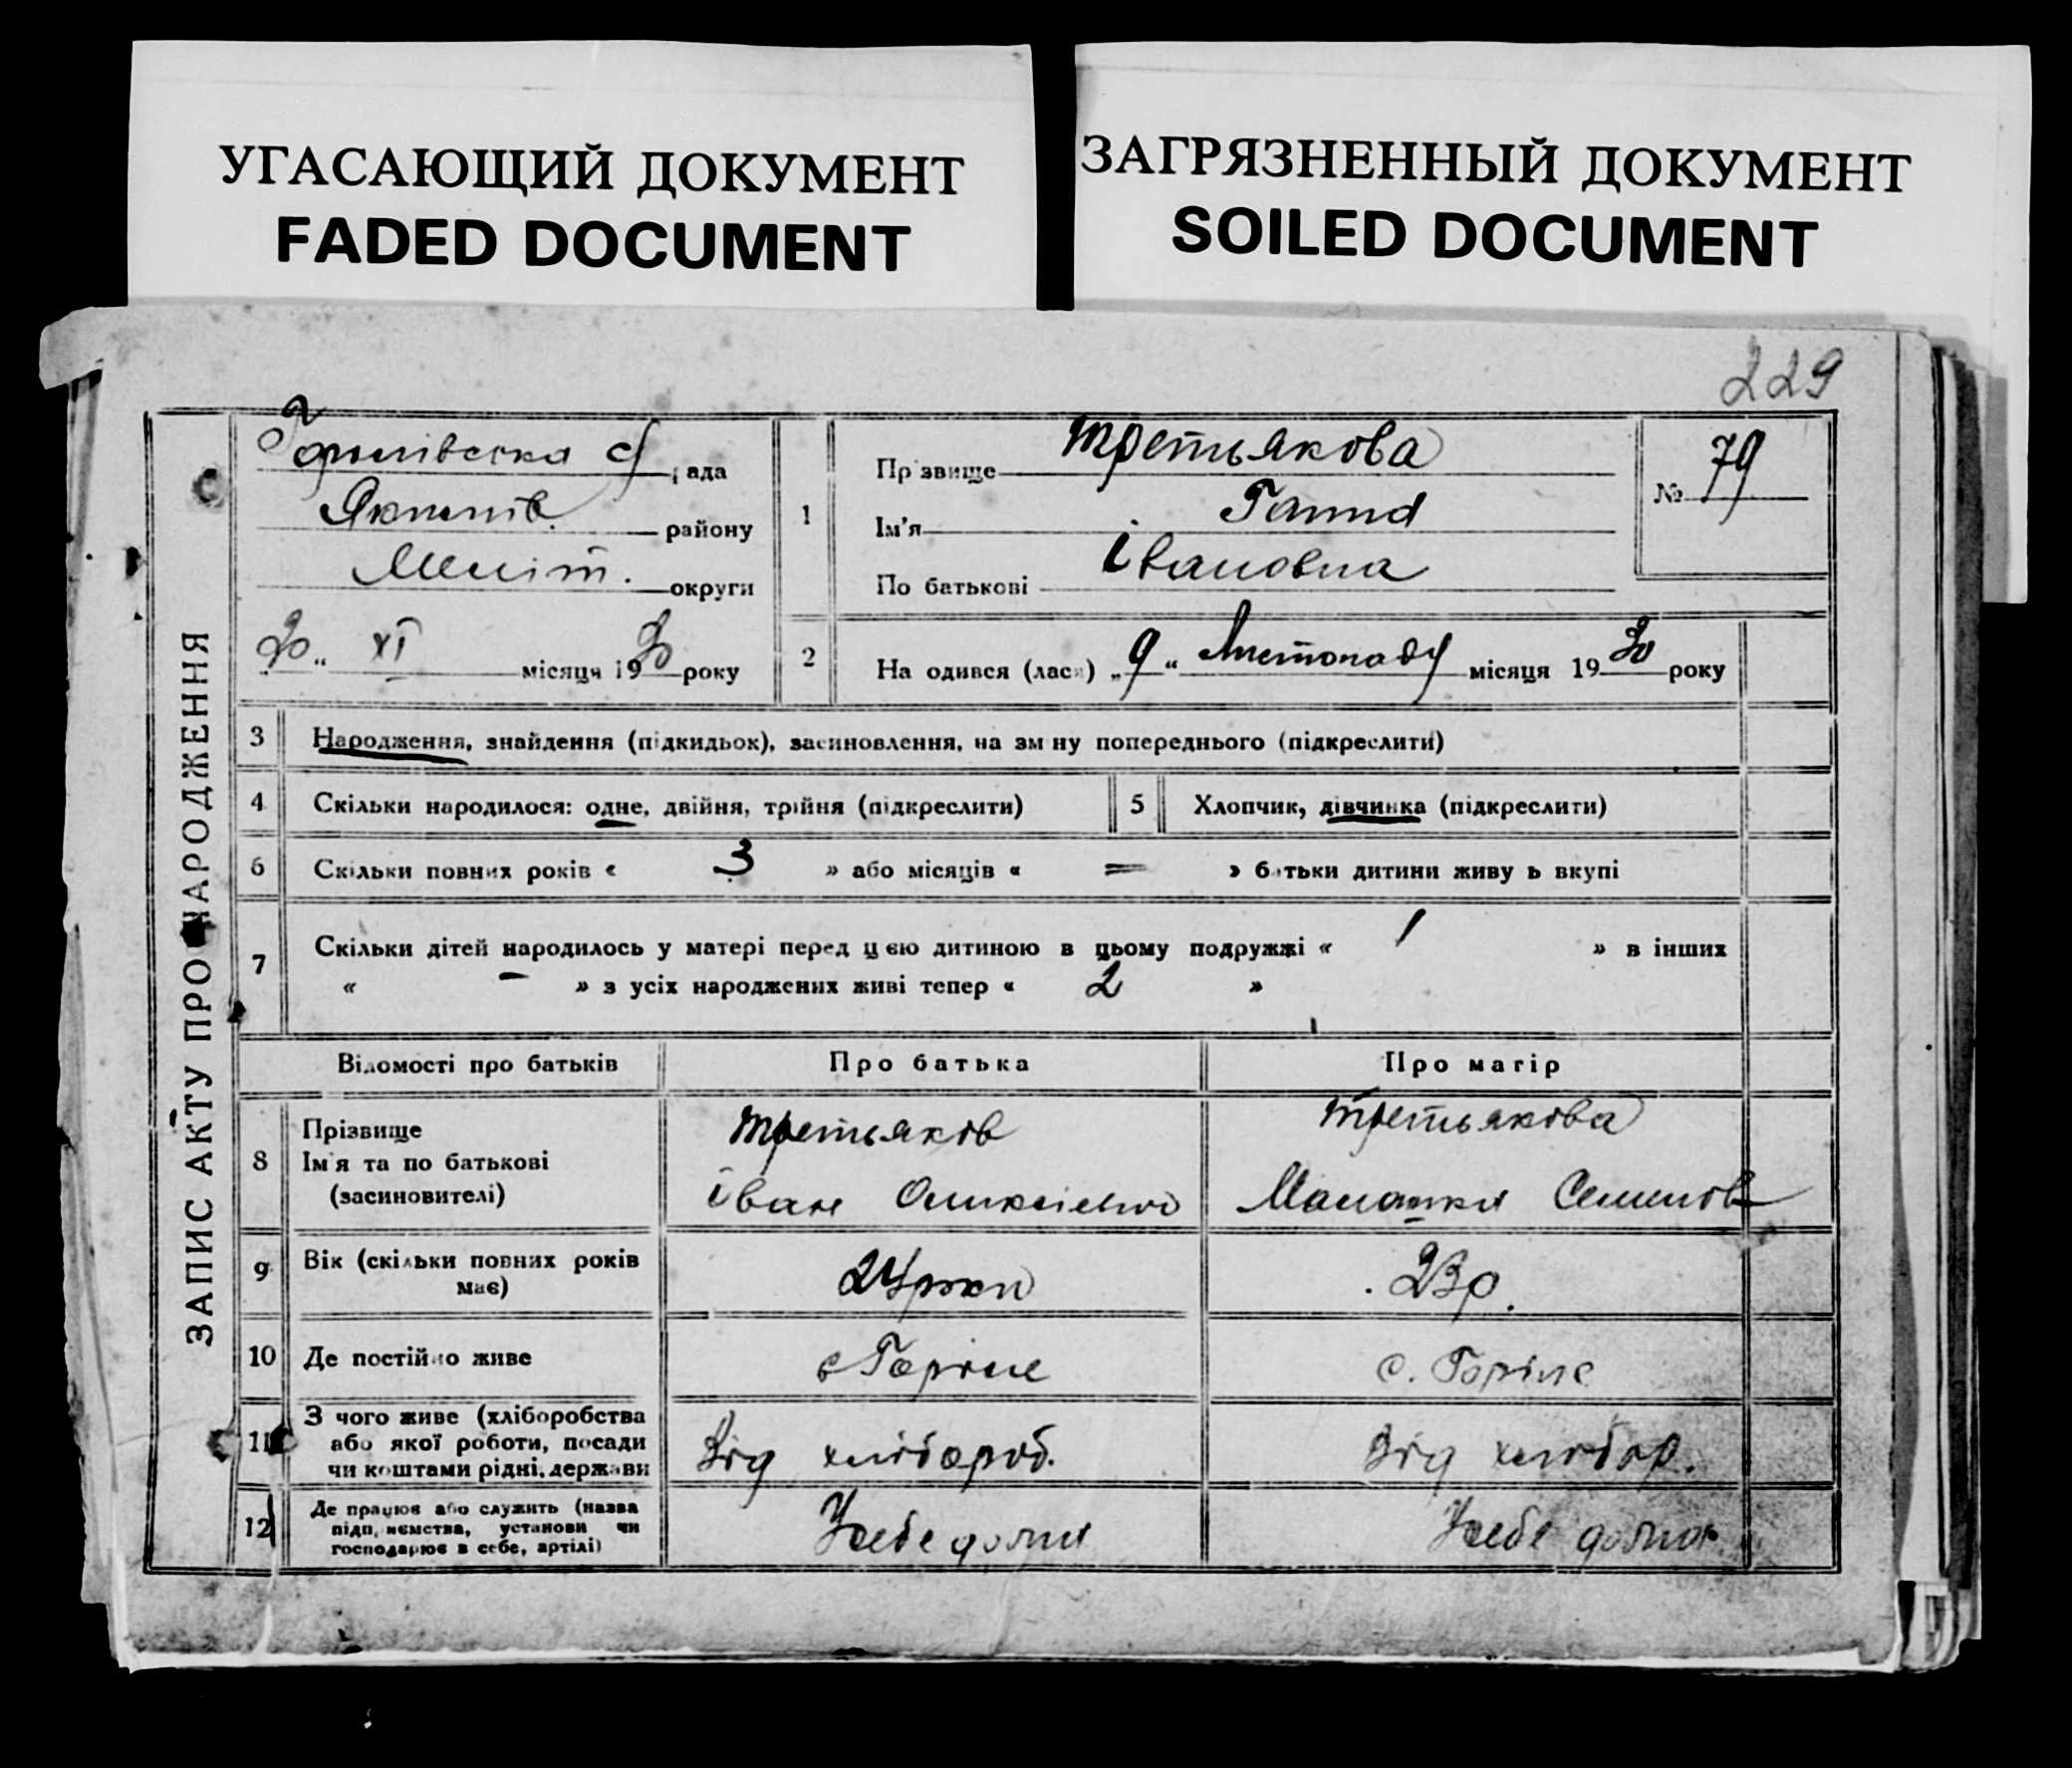 УГАСАЮЩИЙ ДОКУМЕНТ
FADED DOCUMENT
ЗАГРЯЗНЕННЫЙ ДОКУМЕНТ
SOILED DOCUMENT
229
ЗАПИС АКТУ ПРО НАРОДЖЕННЯ
Горілівська с/ рада
Якимів. району
Меліт. округи
20 „ XI місяця 1930 року
1
Прізвище Третьякова
Ім'я Ганна
По батькові Івановна
№ 79
2
На одився (лася) „9“ Листопаду місяця 1930 року
3 Народження, знайдення (підкидьок), засиновлення, на зміну попереднього (підкреслити)
4 Скільки народилося: одне, двійня, трійня (підкреслити)
5 Хлопчик, дівчинка (підкреслити)
6 Скільки повних років « 3 » або місяців « = » батьки дитини живуть вкупі
7 Скільки дітей народилось у матері перед цією дитиною в цьому подружжі « 1 » в інших
« – » з усіх народжених живі тепер « 2 »
Відомості про батьків Про батька Про матір
8 Прізвище
Ім'я та по батькові
(засиновителі)
Третьяков
Іван Оликсієвич
Третьякова
Малашка Семенов
9 Вік (скільки повних років
має)
24 роки
23 р.
10 Де постійно живе
с Горіле
с. Горіле
11 З чого живе (хліборобства
або якої роботи, посади
чи коштами рідні, держави
Від хлібороб.
Від хлібор.
12 Де працює або служить (назва
підприємства, установи чи
господарює в себе, артілі)
У себе дома
У себе дома